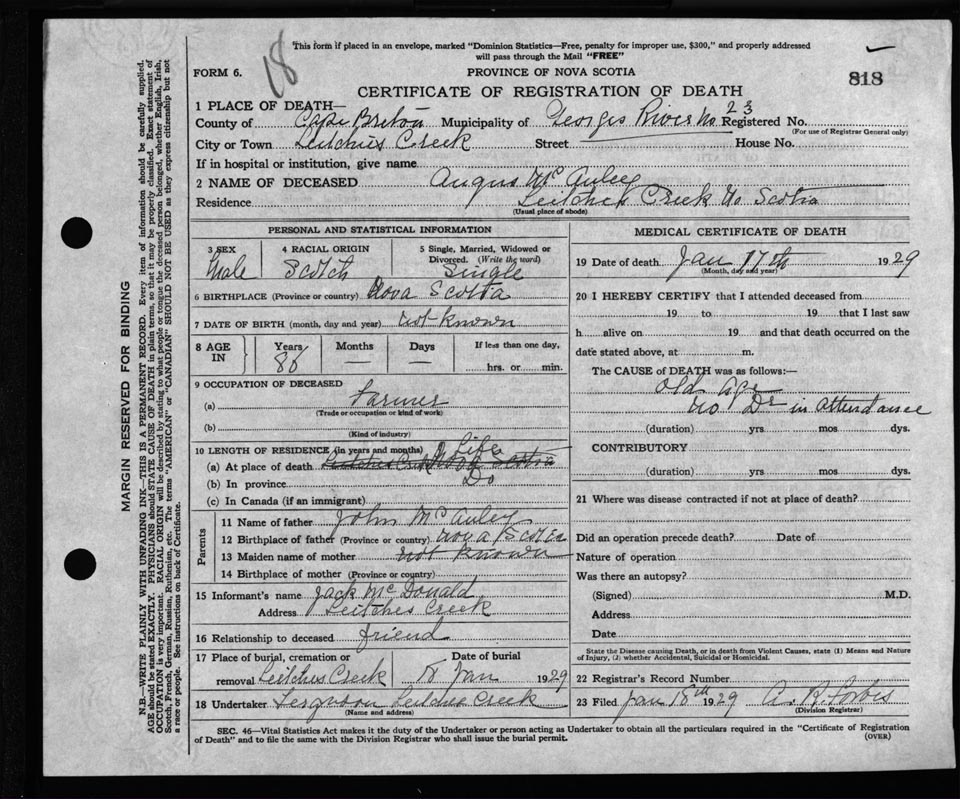 This form if placed in an envelope, marked "Dominion Statistics—Free, penalty for improper use, $300," and properly addressed
will pass through the Mail "FREE"
18
FORM 6.
PROVINCE OF NOVA SCOTIA
818
CERTIFICATE OF REGISTRATION OF DEATH
1 PLACE OF DEATH—
County of Cape Breton Municipality of Georges River No 23 Registered No.
(For use of Registrar General only)
City or Town Leitches Creek Street House No.
If in hospital or institution, give name
2 NAME OF DECEASED Angus McAuley
Residence Leitches Creek No Scotia
(Usual place of abode)
PERSONAL AND STATISTICAL INFORMATION
3 SEX Male
4 RACIAL ORIGIN Scotch
5 Single, Married, Widowed or Divorced. (Write the word) Single
6 BIRTHPLACE (Province or country) Nova Scotia
7 DATE OF BIRTH (month, day and year) not known
8 AGE IN Years 86 Months — Days — If less than one day, hrs. or min.
9 OCCUPATION OF DECEASED
(a) Farmer
(Trade or occupation or kind of work)
(b)
(Kind of industry)
10 LENGTH OF RESIDENCE (in years and months) Life
(a) At place of death Leitches Creek Nova Scotia
(b) In province Do
(c) In Canada (if an immigrant)
Parents
11 Name of father John McAuley
12 Birthplace of father (Province or country) Nova Scotia
13 Maiden name of mother not known
14 Birthplace of mother (Province or country)
15 Informant's name Jack McDonald
Address Leitches Creek
16 Relationship to deceased friend
17 Place of burial, cremation or removal Leitches Creek
Date of burial 18 Jan 1929
18 Undertaker Ferguson Leitches Creek
(Name and address)
MEDICAL CERTIFICATE OF DEATH
19 Date of death Jan 17th 1929
(Month, day and year)
20 I HEREBY CERTIFY that I attended deceased from
19 to 19 that I last saw
h alive on 19 and that death occurred on the
date stated above, at m.
The CAUSE of DEATH was as follows:—
Old Age
No Dr in Attendance
(duration) yrs. mos. dys.
CONTRIBUTORY
(duration) yrs. mos. dys.
21 Where was disease contracted if not at place of death?
Did an operation precede death? Date of
Nature of operation
Was there an autopsy?
(Signed) M.D.
Address
Date
State the Disease causing Death, or in death from Violent Causes, state (1) Means and Nature
of Injury, (2) whether Accidental, Suicidal or Homicidal.
22 Registrar's Record Number
23 Filed Jan 18th 1929 A. R. Forbes
(Division Registrar)
SEC. 46—Vital Statistics Act makes it the duty of the Undertaker or person acting as Undertaker to obtain all the particulars required in the "Certificate of Registration
of Death" and to file the same with the Division Registrar who shall issue the burial permit.
(OVER)
MARGIN RESERVED FOR BINDING
N.B.—WRITE PLAINLY WITH UNFADING INK—THIS IS A PERMANENT RECORD. Every item of information should be carefully supplied.
AGE should be stated EXACTLY. PHYSICIANS should STATE CAUSE OF DEATH in plain terms, so that it may be properly classified. Exact statement of
OCCUPATION is very important. RACIAL ORIGIN will be described by stating to what people or tongue the deceased person belonged, whether English, Irish,
Scotch, French, German, Russian, Ruthenian, etc. The terms "AMERICAN" or "CANADIAN" SHOULD NOT BE USED as they express citizenship but not
a race or people. See instructions on back of Certificate.